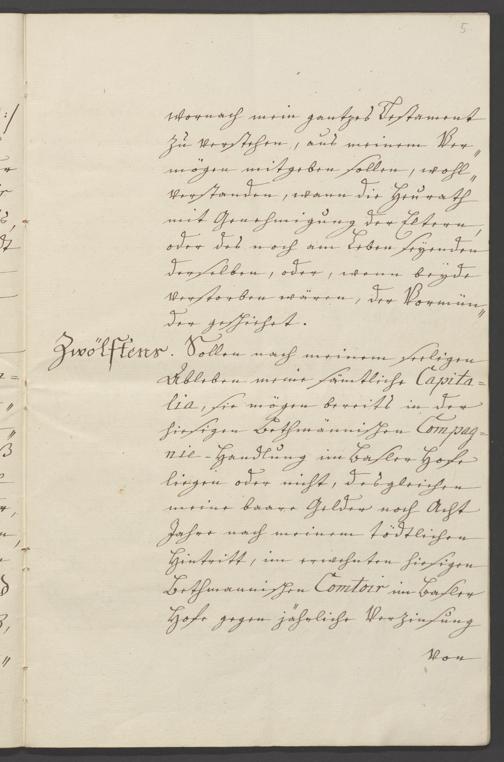 5
wornach mein gantzes Testament
zu verstehen, aus meinem Ver„
mögen mitgeben sollen, wohl„
verstanden, wann die Heurath
mit Genehmigung der Eltern,
oder des noch am Leben seyenden
derselben, oder, wenn beyde
verstorben wären, der Vormün„
der geschiehet.
Zwölftens. Sollen nach meinem seeligen
Ableben meine sämtliche Capita=
lia, sie mögen bereits in der
hiesigen Bethmännischen Compag=
nie-Handlung im Basler Hofe
liegen oder nicht, desgleichen
meine baare Gelder noch Acht
Jahre nach meinem tödtlichen
Hintritt, im erwehnten hiesigen
Bethmannischen Comtoir im Basler
Hofe gegen jährliche Verzinsung
von